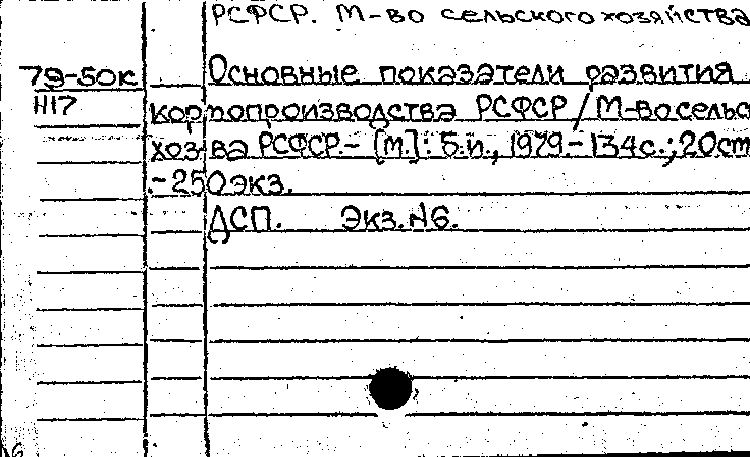 РСФСР. М-во сельского хозяйства
79-50к Основные показатели развития
Н17 кормопроизводства РСФСР / М-во сельс
хоз-ва РСФСР.- [М.]: Б.и., 1979.- 134с.; 20см
.-250экз.
ДСП. Экз.N6.